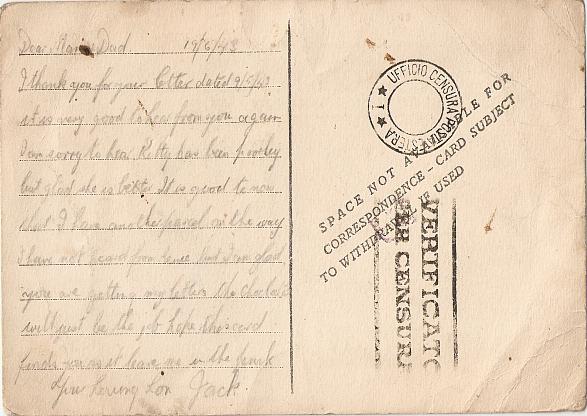 Dear Mam & Dad. 19/6/43
I thank you for your letter dated 9/5/43
it is very good to hear from you again
I am sorry to hear Kitty has been poorley
but glad she is better. It is good to now
that I have another parcel on the way
I have not heard from but I am glad
you are getting my letters the chocolate
will just be the job hope this card
finds you as it leave me in the pink
Your Loving Son Jack
UFFICIO CENSURA POSTA ESTERA
1
SPACE NOT AVAILABLE FOR
CORRESPONDENCE - CARD SUBJECT
TO WITHDRAWAL IF USED
VERIFICATO
PER CENSURA